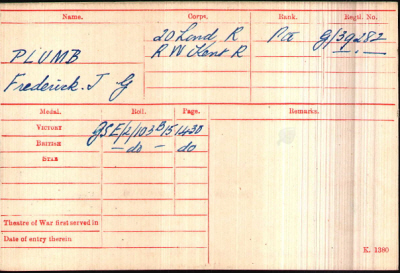 Name. Corps. Rank. Regtl. No.
20 Lond. R Pte G/39282
PLUMB R W Kent R — . —
Frederick. J G
Medal. Roll. Page. Remarks.
VICTORY
BRITISH — do — do
STAR
Theatre of War first served in
Date of entry therein
K. 1380